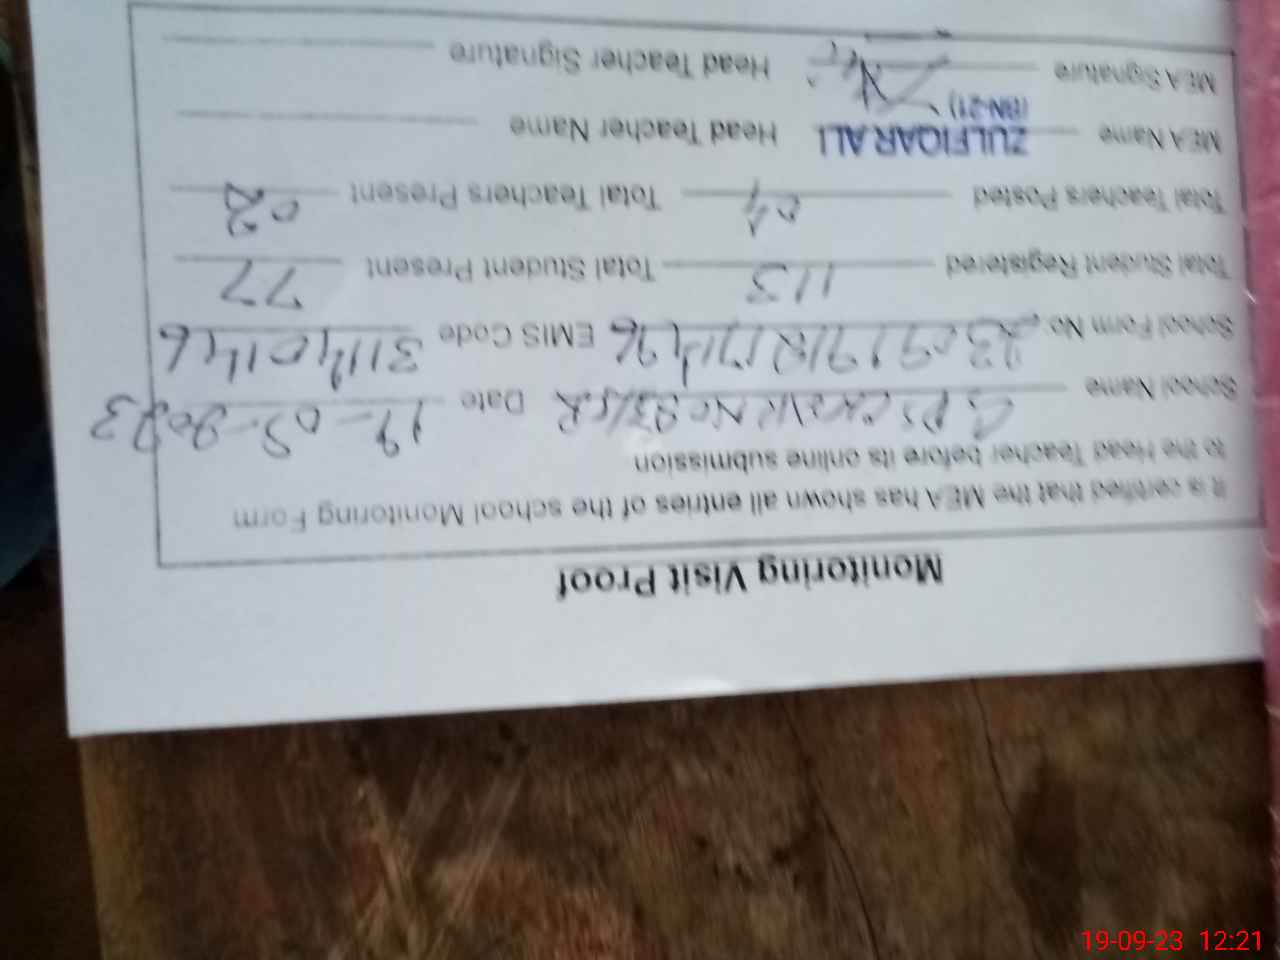 Monitoring Visit Proof
It is certified that the MEA has shown all entries of the school Monitoring Form
to the Head Teacher before its online submission
School Name Date 19-09-2023
School Form No. EMIS Code 31140146
Total Student Registered 113 Total Student Present 77
Total Teachers Posted 04 Total Teachers Present 02
MEA Name ZULFIQAR ALI (BN-21) Head Teacher Name
MEA Signature Head Teacher Signature
19-09-23 12:21